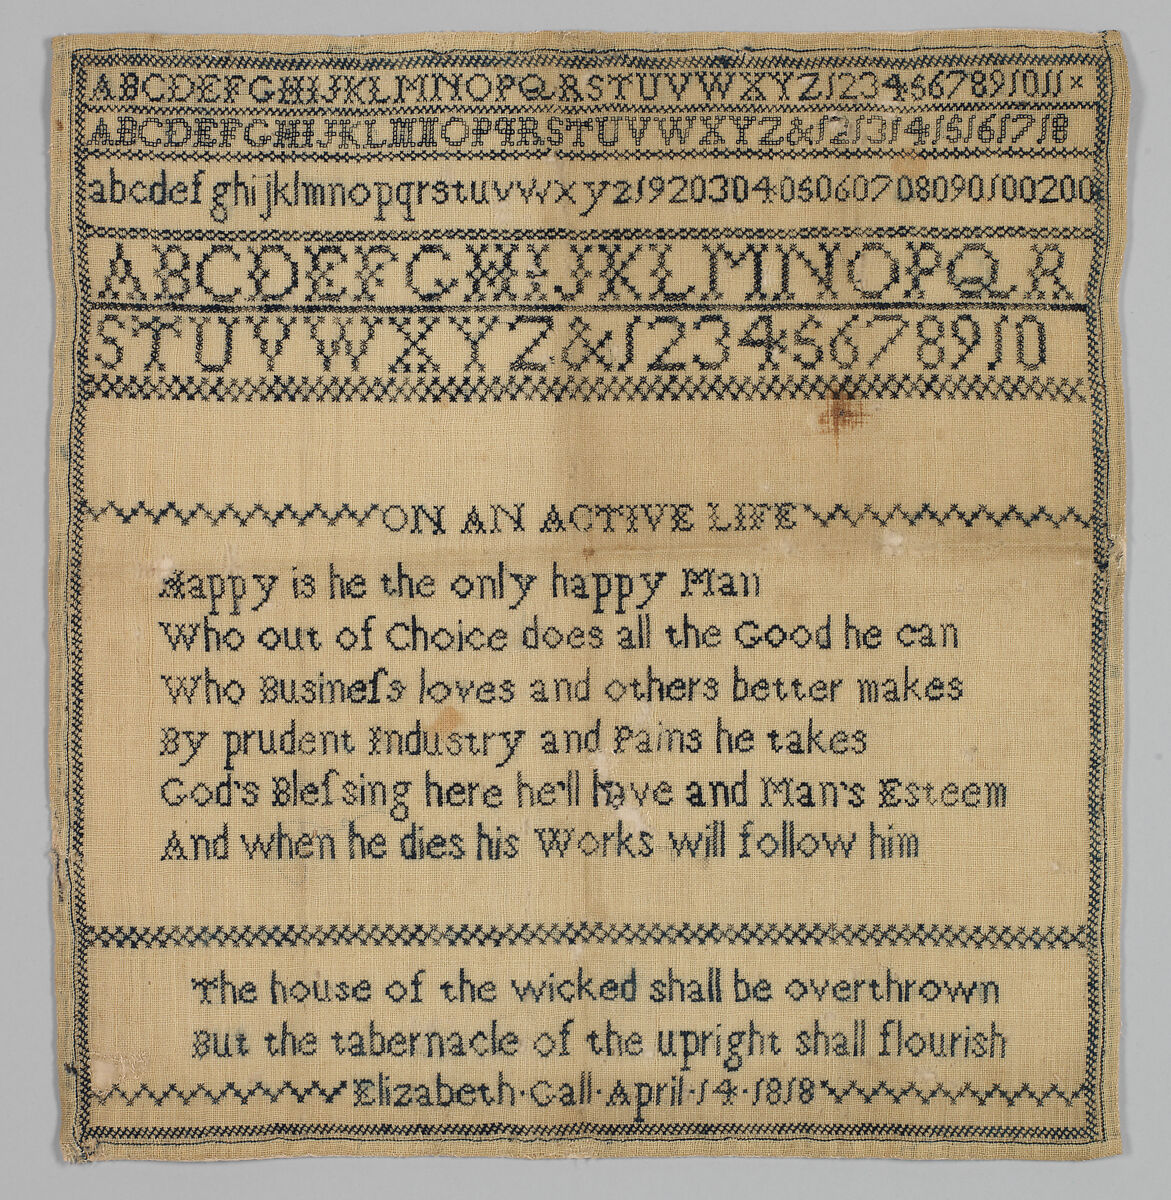 ABCDEFGHIJKLMNOPQRSTUVWXYZ1234567891011
ABCDEFGHIJKLMNOPQRSTUVWXYZ&12131415161718
abcdefghijklmnopqrstuvwxyz192030405060708090100200
ABCDEFGHIJKLMNOPQR
STUVWXYZ&12345678910
ON AN ACTIVE LIFE
Happy is he the only happy Man
Who out of Choice does all the Good he can
Who Busineſs loves and others better makes
By prudent Industry and Pains he takes
God's Bleſsing here he'll have and Man's Esteem
And when he dies his Works will follow him
The house of the wicked shall be overthrown
But the tabernacle of the upright shall flourish
Elizabeth·Gall·April·14·1818